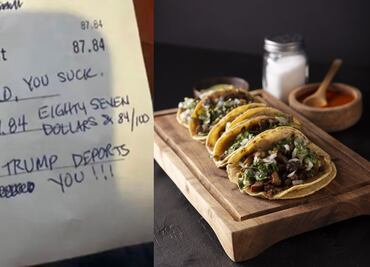 87.84
t 87.84
D, YOU SUCK.
.84 EIGHTY SEVEN
DOLLARS & 84/100
TRUMP DEPORTS
YOU!!!